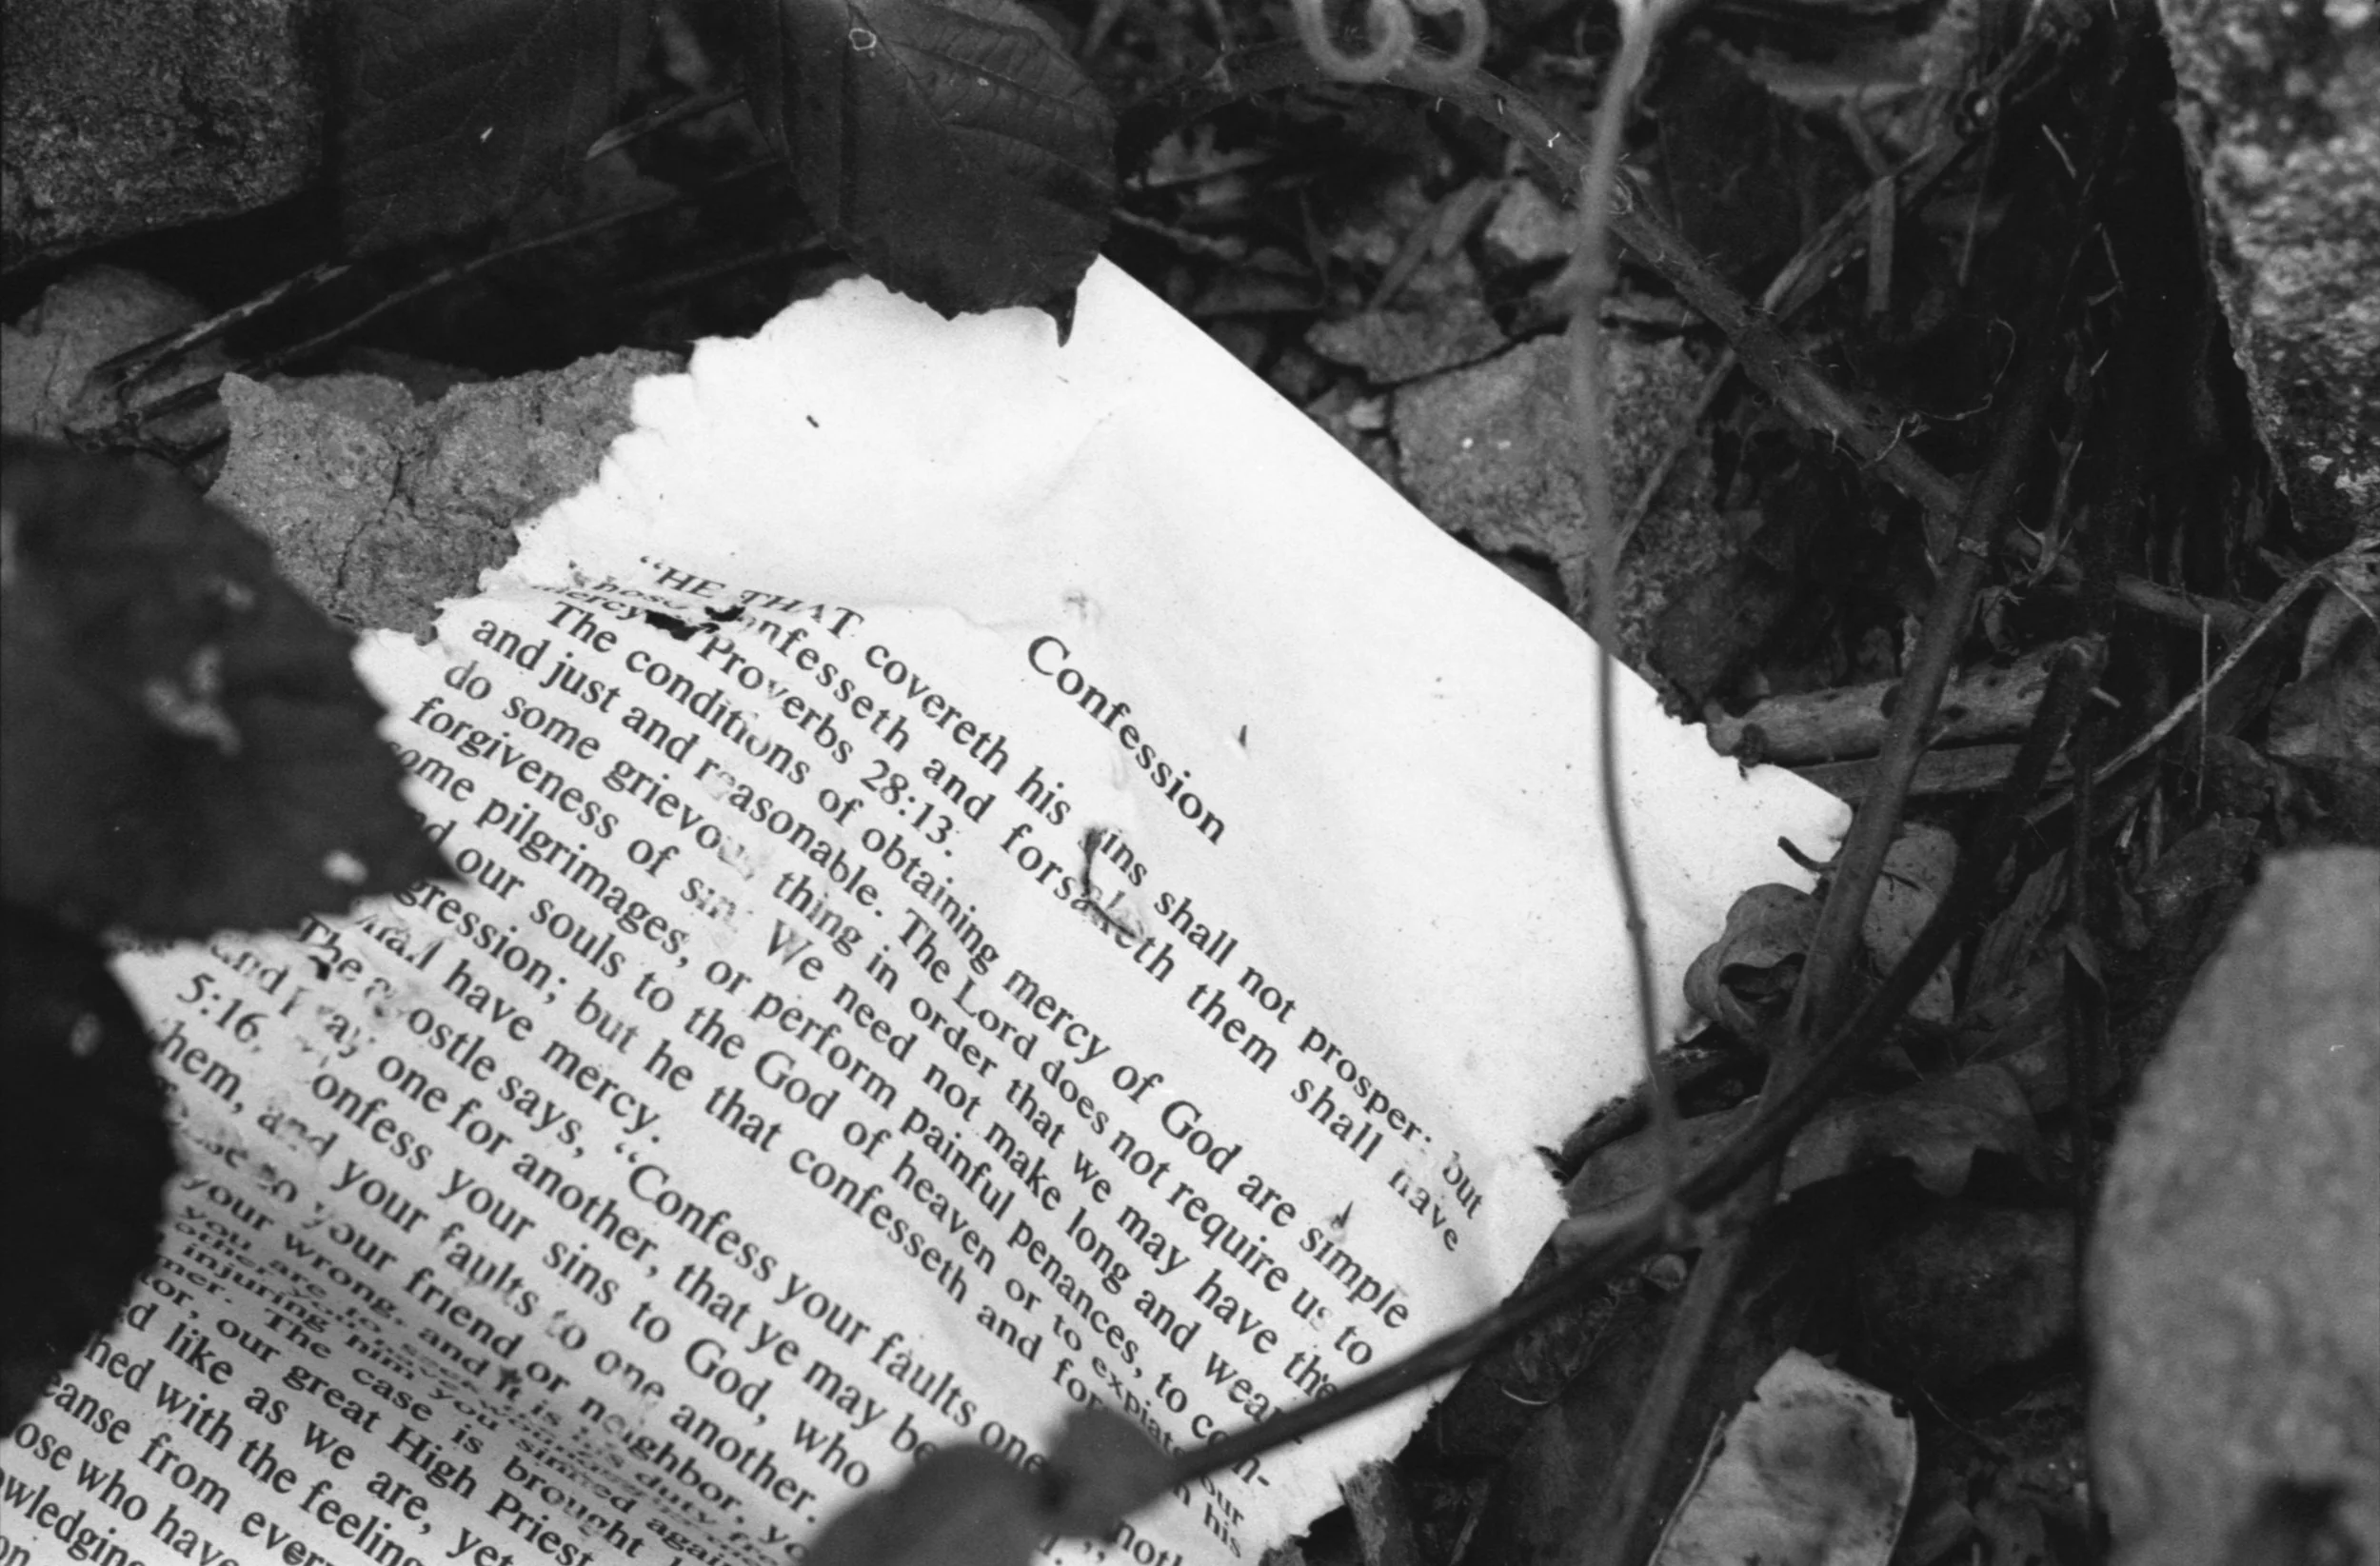 Confession
“HE THAT covereth his sins shall not prosper: but
whoso confesseth and forsaketh them shall have
mercy Proverbs 28:13.
The conditions of obtaining mercy of God are simple
and just and reasonable. The Lord does not require us to
do some grievous thing in order that we may have the
forgiveness of sin. We need not make long and wear
ome pilgrimages, or perform painful penances, to com-
d our souls to the God of heaven or to expiate our
gression; but he that confesseth and for his
shall have mercy.
The apostle says, “Confess your faults one
and pray one for another, that ye may be
5:16. Confess your sins to God, who
hem, and your faults to one another.
to your friend or neighbor, yo
your wrong, and it is his duty fre
you are to seek
injuring him, you sinned again
ner. The case is brought
tor, our great High Priest
d like as we are, yet
hed with the feeling
eanse from ever
ose who have
owledgin
on